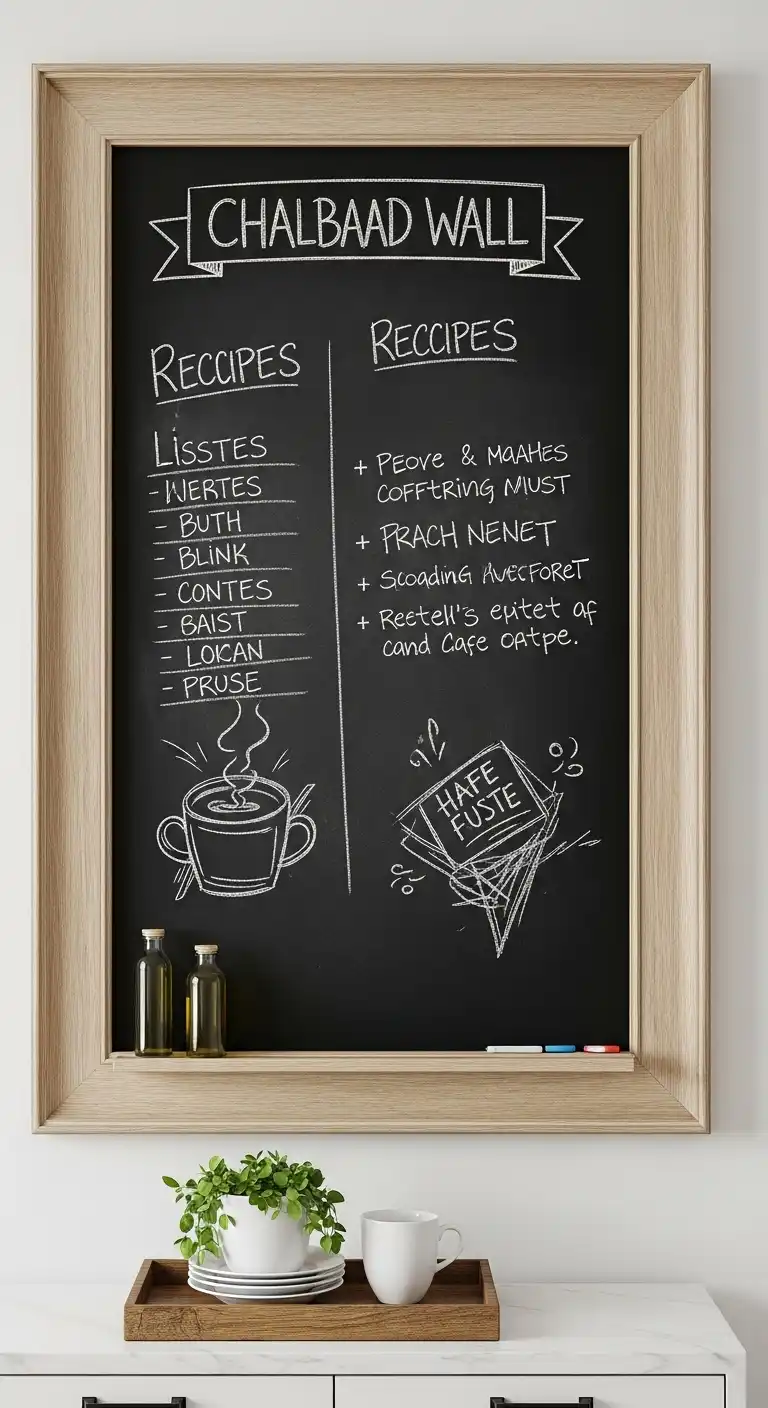 CHALBAAD WALL
RECCIPES
LISSTES
- WERTES
- BUTH
- BLINK
- CONTES
- BAIST
- LOKAN
- PRUSE
RECCIPES
+ PEOVE & MAAHES
COFFTRING MUST
+ PRACH NENET
+ Scoading
+ Reetell's epitet af
cand Cafe oatpe.
HAFE
FUSTE